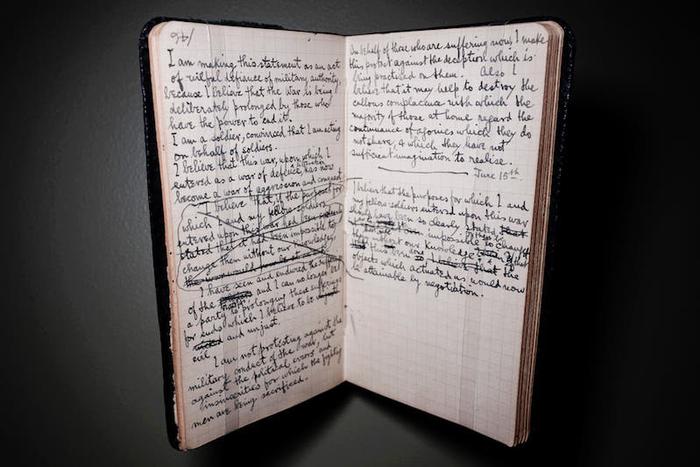 I am making this statement as an act
of wilful defiance of military authority,
because I believe that the war is being
deliberately prolonged by those who
have the power to end it.
I am a soldier, convinced that I am acting
on behalf of soldiers.
I believe that this war, upon which I
entered as a war of defence, has now
become a war of aggression and conquest
I believe that if the purposes for
which I and my fellow-soldiers
entered upon this war had been
stated it had been impossible to
change them without our knowledge
I have seen and endured the
of the and I can no longer be
a party to prolonging these sufferings
for ends which I believe to be
evil and unjust.
I am not protesting against the
military conduct of the war, but
against the political errors and
insincerities for which the fighting
men are being sacrificed.
On behalf of those who are suffering now, I make
this protest against the deception which is
being practised on them. Also I
believe that it may help to destroy the
callous complacence with which the
majority of those at home regard the
continuance of agonies which they do
not share, & which they have not
sufficient imagination to realise.
June 15th
I believe that the purposes for which I and
my fellow soldiers entered upon this war
should have been so clearly stated
impossible to change
them without our knowledge
objects which actuated us would now
be attainable by negotiation.